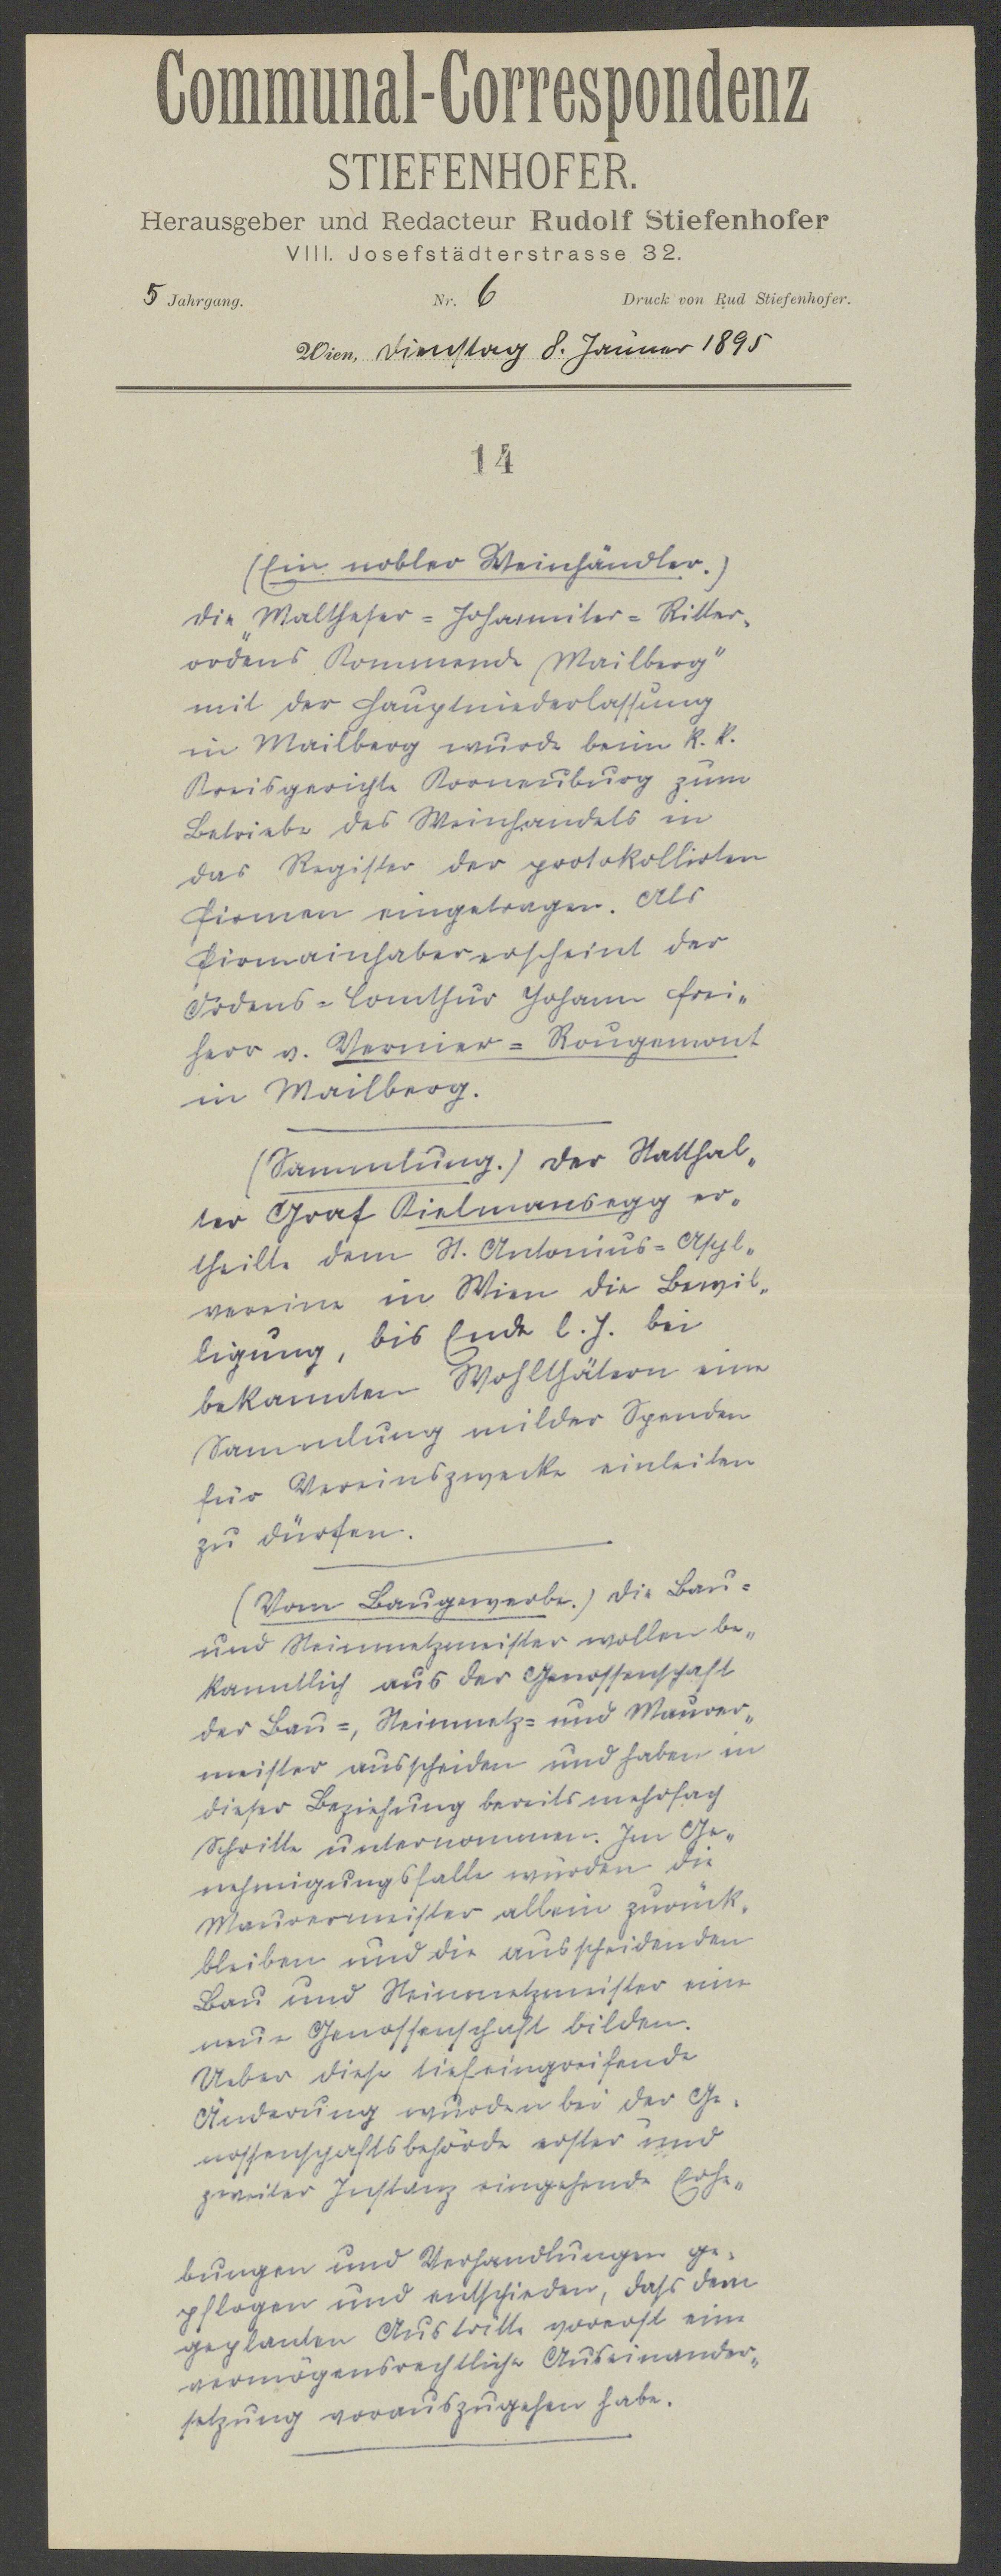 Communal-Correspondenz
STIEFENHOFER.
Herausgeber und Redacteur Rudolf Stiefenhofer
VIII. Josefstädterstrasse 32.
5 Jahrgang. Nr. 6 Druck von Rud Stiefenhofer.
Wien, Dienstag 8. Jänner 1895
14
(Ein nobler Weinhändler.)
Die „Maltheser=Johanniter=Ritter„
ordens Kommende Mailberg"
mit der Hauptniederlassung
in Mailberg wurde beim k. k.
Kreisgerichte Korneuburg zum
Betriebe des Weinhandels in
das Register der protokollirten
Firmen eingetragen. Als
Firmainhaber erscheint der
Ordens=Comthur Johann Frei„
herr v. Vernier=Rougemont
in Mailberg.
(Sammlung.) Der Statthal„
ter Graf Kielmansegg er„
theilte dem St. Antonius=Asyl„
vereine in Wien die Bewil„
ligung, bis Ende l. J. bei
bekannten Wohlthätern eine
Sammlung milder Spenden
für Vereinszwecke einleiten
zu dürfen.
(Vom Baugewerbe.) Die Bau=
und Steinmetzmeister wollen be„
kanntlich aus der Genossenschaft
der Bau=, Steinmetz= und Maurer„
meister ausscheiden und haben in
dieser Beziehung bereits mehrfach
Schritte unternommen. Im Ge„
nehmigungsfalle würden die
Maurermeister allein zurück„
bleiben und die ausscheidenden
Bau und Steinmetzmeister eine
neue Genossenschaft bilden.
Ueber diese tiefeingreifende
Änderung wurden bei der Ge„
nossenschaftsbehörde erster und
zweiter Instanz eingehende Erhe„
bungen und Verhandlungen ge„
pflogen und entschieden, dass dem
geplanten Austritte vorerst eine
vermögensrechtliche Auseinander„
setzung vorauszugehen habe.